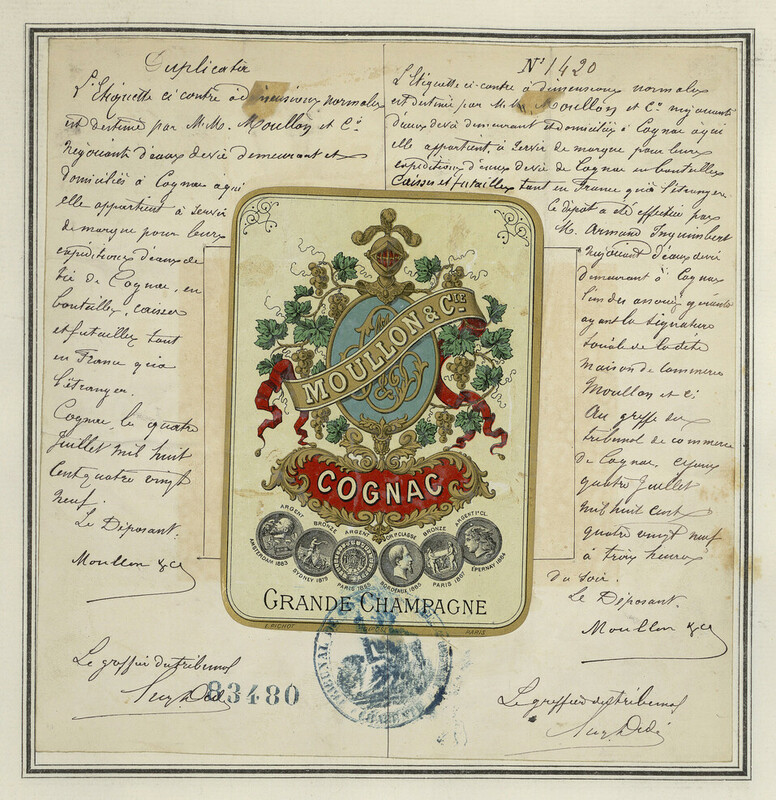 Duplicata
L'Etiquette ci contre à dimensions normales
est destinée par M.M. Moullon et Cie
négociants d'eaux de vie demeurant et
domiciliés à Cognac à qui
elle appartient à servir
de marque pour leurs
expéditions d'eaux de
vie de Cognac, en
bouteilles, caisses
et futailles tant
en France qu'à
l'étranger.
Cognac, le quatre
Juillet mil huit
cent quatre vingt
neuf.
Le Déposant.
Moullon & Cie
Le greffier du tribunal
83480
No 1420
L'Etiquette ci-contre à dimensions normales
est destinée par M.M. Moullon et Cie négociants
d'eaux de vie demeurant et domiciliés à Cognac à qui
elle appartient à servir de marque pour leurs
expéditions d'eaux de vie de Cognac en bouteilles
Caisses et futailles tant en France qu'à l'étranger
Ce dépôt a été effectué par
M. Armand Inquimbert
Négociant d'eaux de vie
demeurant à Cognac
l'un des associés gérants
ayant la signature
sociale de la dite
maison de commerce
Moullon et Cie
Au greffe du
tribunal de commerce
de Cognac, ce jour
quatre Juillet
mil huit cent
quatre vingt neuf
à trois heures
du soir.
Le Déposant.
Moullon & Cie
Le greffier du tribunal
MOULLON & CIE
COGNAC
ARGENT BRONZE ARGENT OR 1E CLASSE BRONZE ARGENT 1E CL.
AMSTERDAM 1883 SYDNEY 1879 PARIS BORDEAUX PARIS 1867 EPERNAY
GRANDE CHAMPAGNE
E. PICHOT PARIS